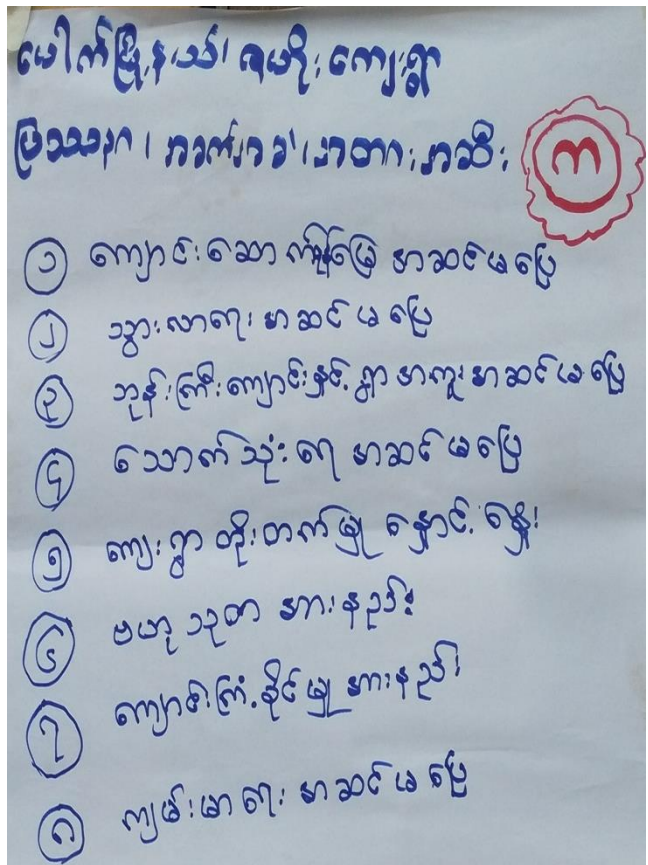 ပေါက်မြို့နယ်၊ ရမိုးကျေးရွာ
ပြဿနာ၊ အခက်အခဲ၊ အတားအဆီး က
၁ ကျောင်းဆောက်ရန်မြေ အဆင်မပြေ
၂ သွားလာရေး အဆင်မပြေ
၃ ဘုန်းကြီးကျောင်းနှင့် ရွာအကူး အဆင်မပြေ
၄ သောက်သုံးရေ အဆင်မပြေ
၅ ကျေးရွာ တိုးတက်မှု နှောင့်နှေး
၆ ဗဟုသုတ အားနည်း
၇ ကျောင်းကြံ့ခိုင်မှု အားနည်း
၈ ကျမ်းမာရေး အဆင်မပြေ